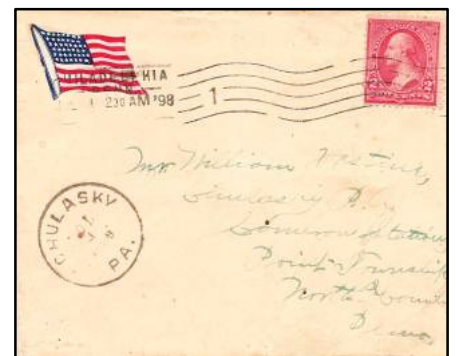 PHILADELPHIA
PENNA
1 230 AM '98
1
2 CENTS 2
Mr. William Vastine,
Chulasky P.O.
Cameron Station
Point Township
North'd County
Penna,
CHULASKY
PA.